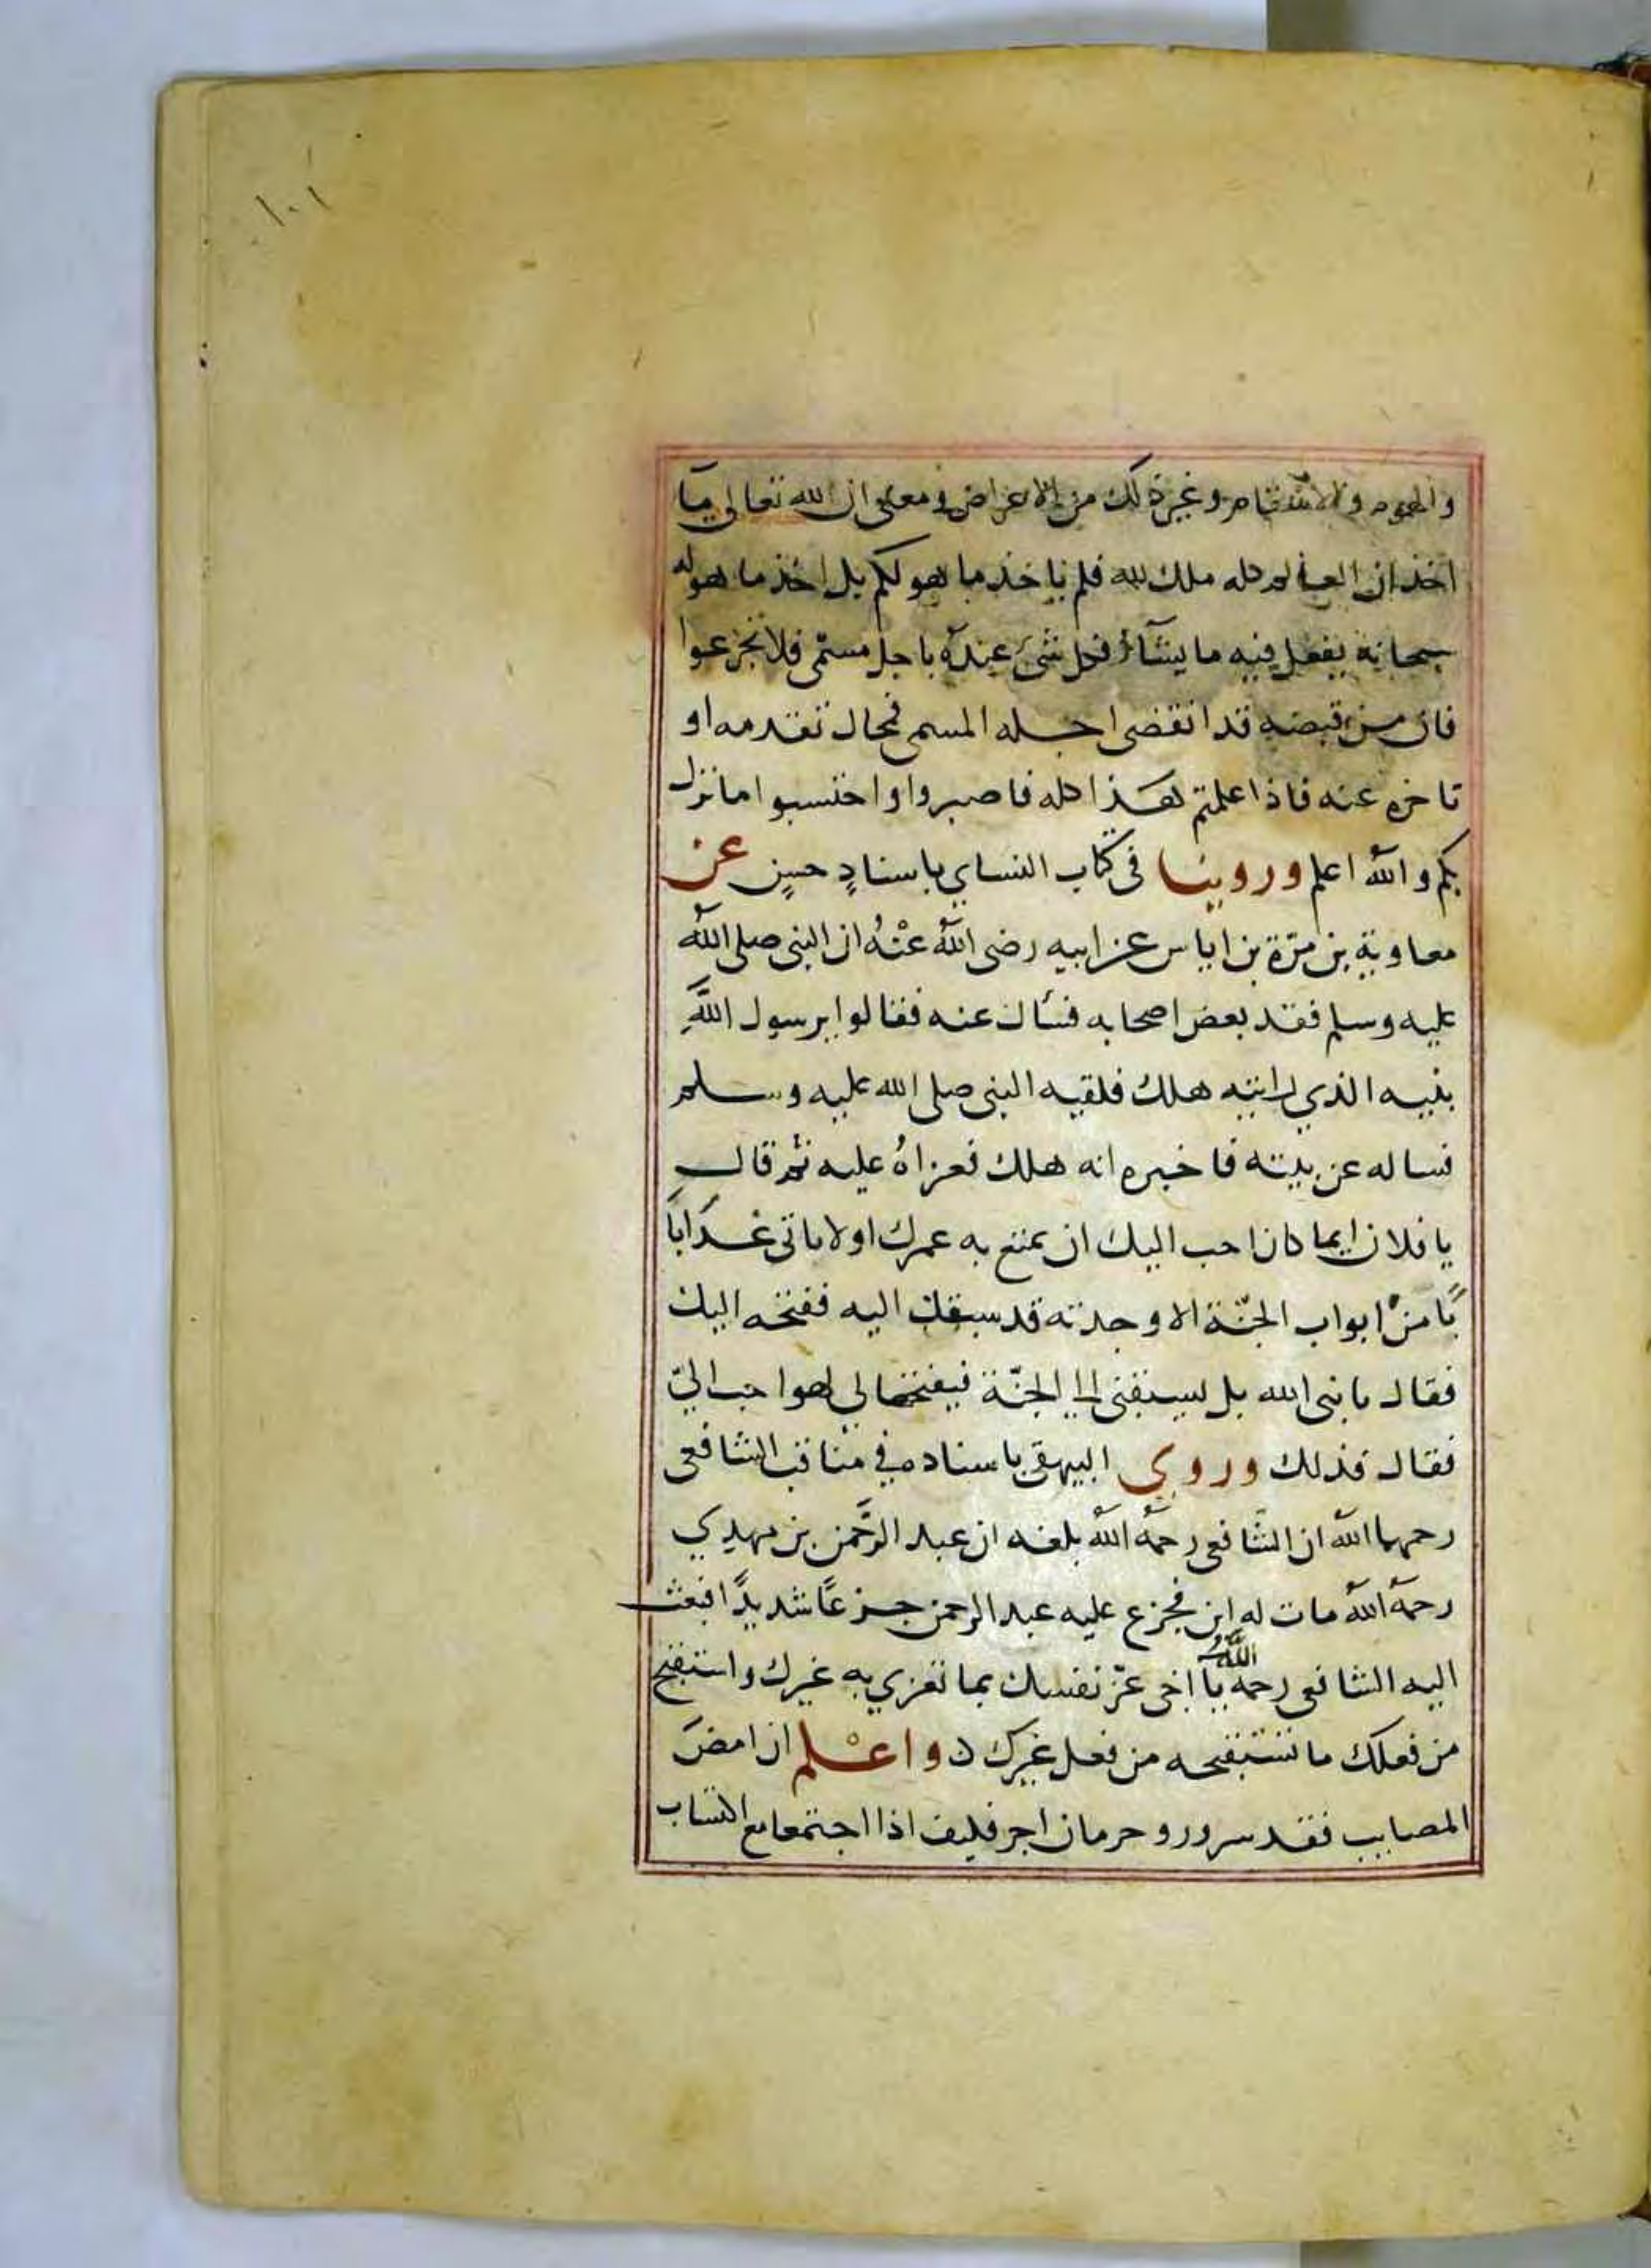 ١٠١
والهموم والاسقام وغير ذلك من الاعراض ومعنى ان الله تعالى ما
اخذ ان العالم كله ملك لله فلم ياخذ ما هو لكم بل اخذ ما هو له
سبحانه يفعل فيه ما يشآء فكل شئ عنده باجل مسمّى فلا تجزعوا
فان من قبضه قد انقضى اجله المسمى فمحال تقدمه او
تاخره عنه فاذا علمتم هذا كله فاصبروا واحتسبوا ما نزل
بكم والله اعلم وروينا في كتاب النساي باسنادٍ حسنٍ عن
معاوية بن مرّة بن اياس عن ابيه رضى الله عنْهُ ان النبى صلى الله
عليه وسلم فقد بعض اصحابه فسأل عنه فقالوا يرسول اللَّهِ
بنيه الذي رايته هلك فلقيه النبى صلى الله عليه وسلم
فساله عن بنيه فاخبره انه هلك فعزاهُ عليه ثم قال
يا فلان ايما كان احب اليك ان تمتع به عمرك او لا تاتى غدًا با
بًا من ابواب الجنّة الا وجدته قد سبقك اليه ففتحه اليك
فقال يا نبى الله بل يسبقنى الى الجنّة فيفتحها لى لهوا حب اليّ
فقال فذلك وروى البيهقى باسناده في مناقب الشافعى
رحمهما الله ان الشافعى رحمه الله بلغه ان عبد الرَّحمن بن مهدي
رحمه الله مات له ابن فجزع عليه عبد الرحمن جزعًا شديدًا فبعث
اليه الشافعى رحمه الله يا اخى عزّ نفسك بما تعزي به غيرك واستقبح
من فعلك ما تستقبحه من فعل غيرك ن واعْلم ان امضَ
المصايب فقد سرور وحرمان اجر فكيف اذا اجتمعا مع اكتساب